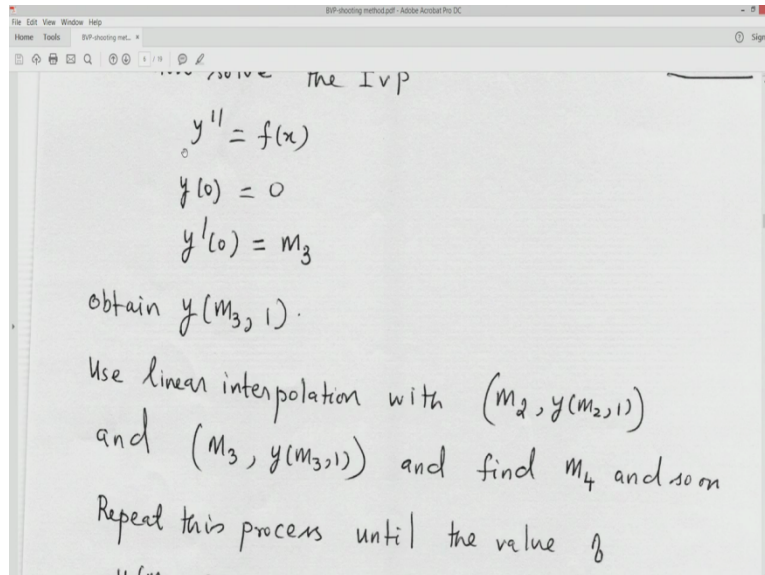 BVP-shooting method.pdf - Adobe Acrobat Pro DC
File Edit View Window Help
Home Tools BVP-shooting met... × Sign
/ 19
solve the IVP
y'' = f(x)
y(0) = 0
y'(0) = m₃
obtain y(m₃, 1).
Use linear interpolation with (m₂, y(m₂, 1))
and (m₃, y(m₃, 1)) and find m₄ and so on
Repeat this process until the value of